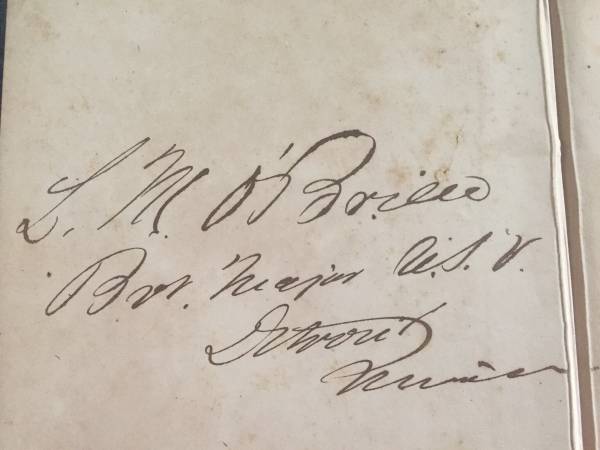 L. M. O'Brien
Bvt. Major U.S.V.
Detroit
Mich